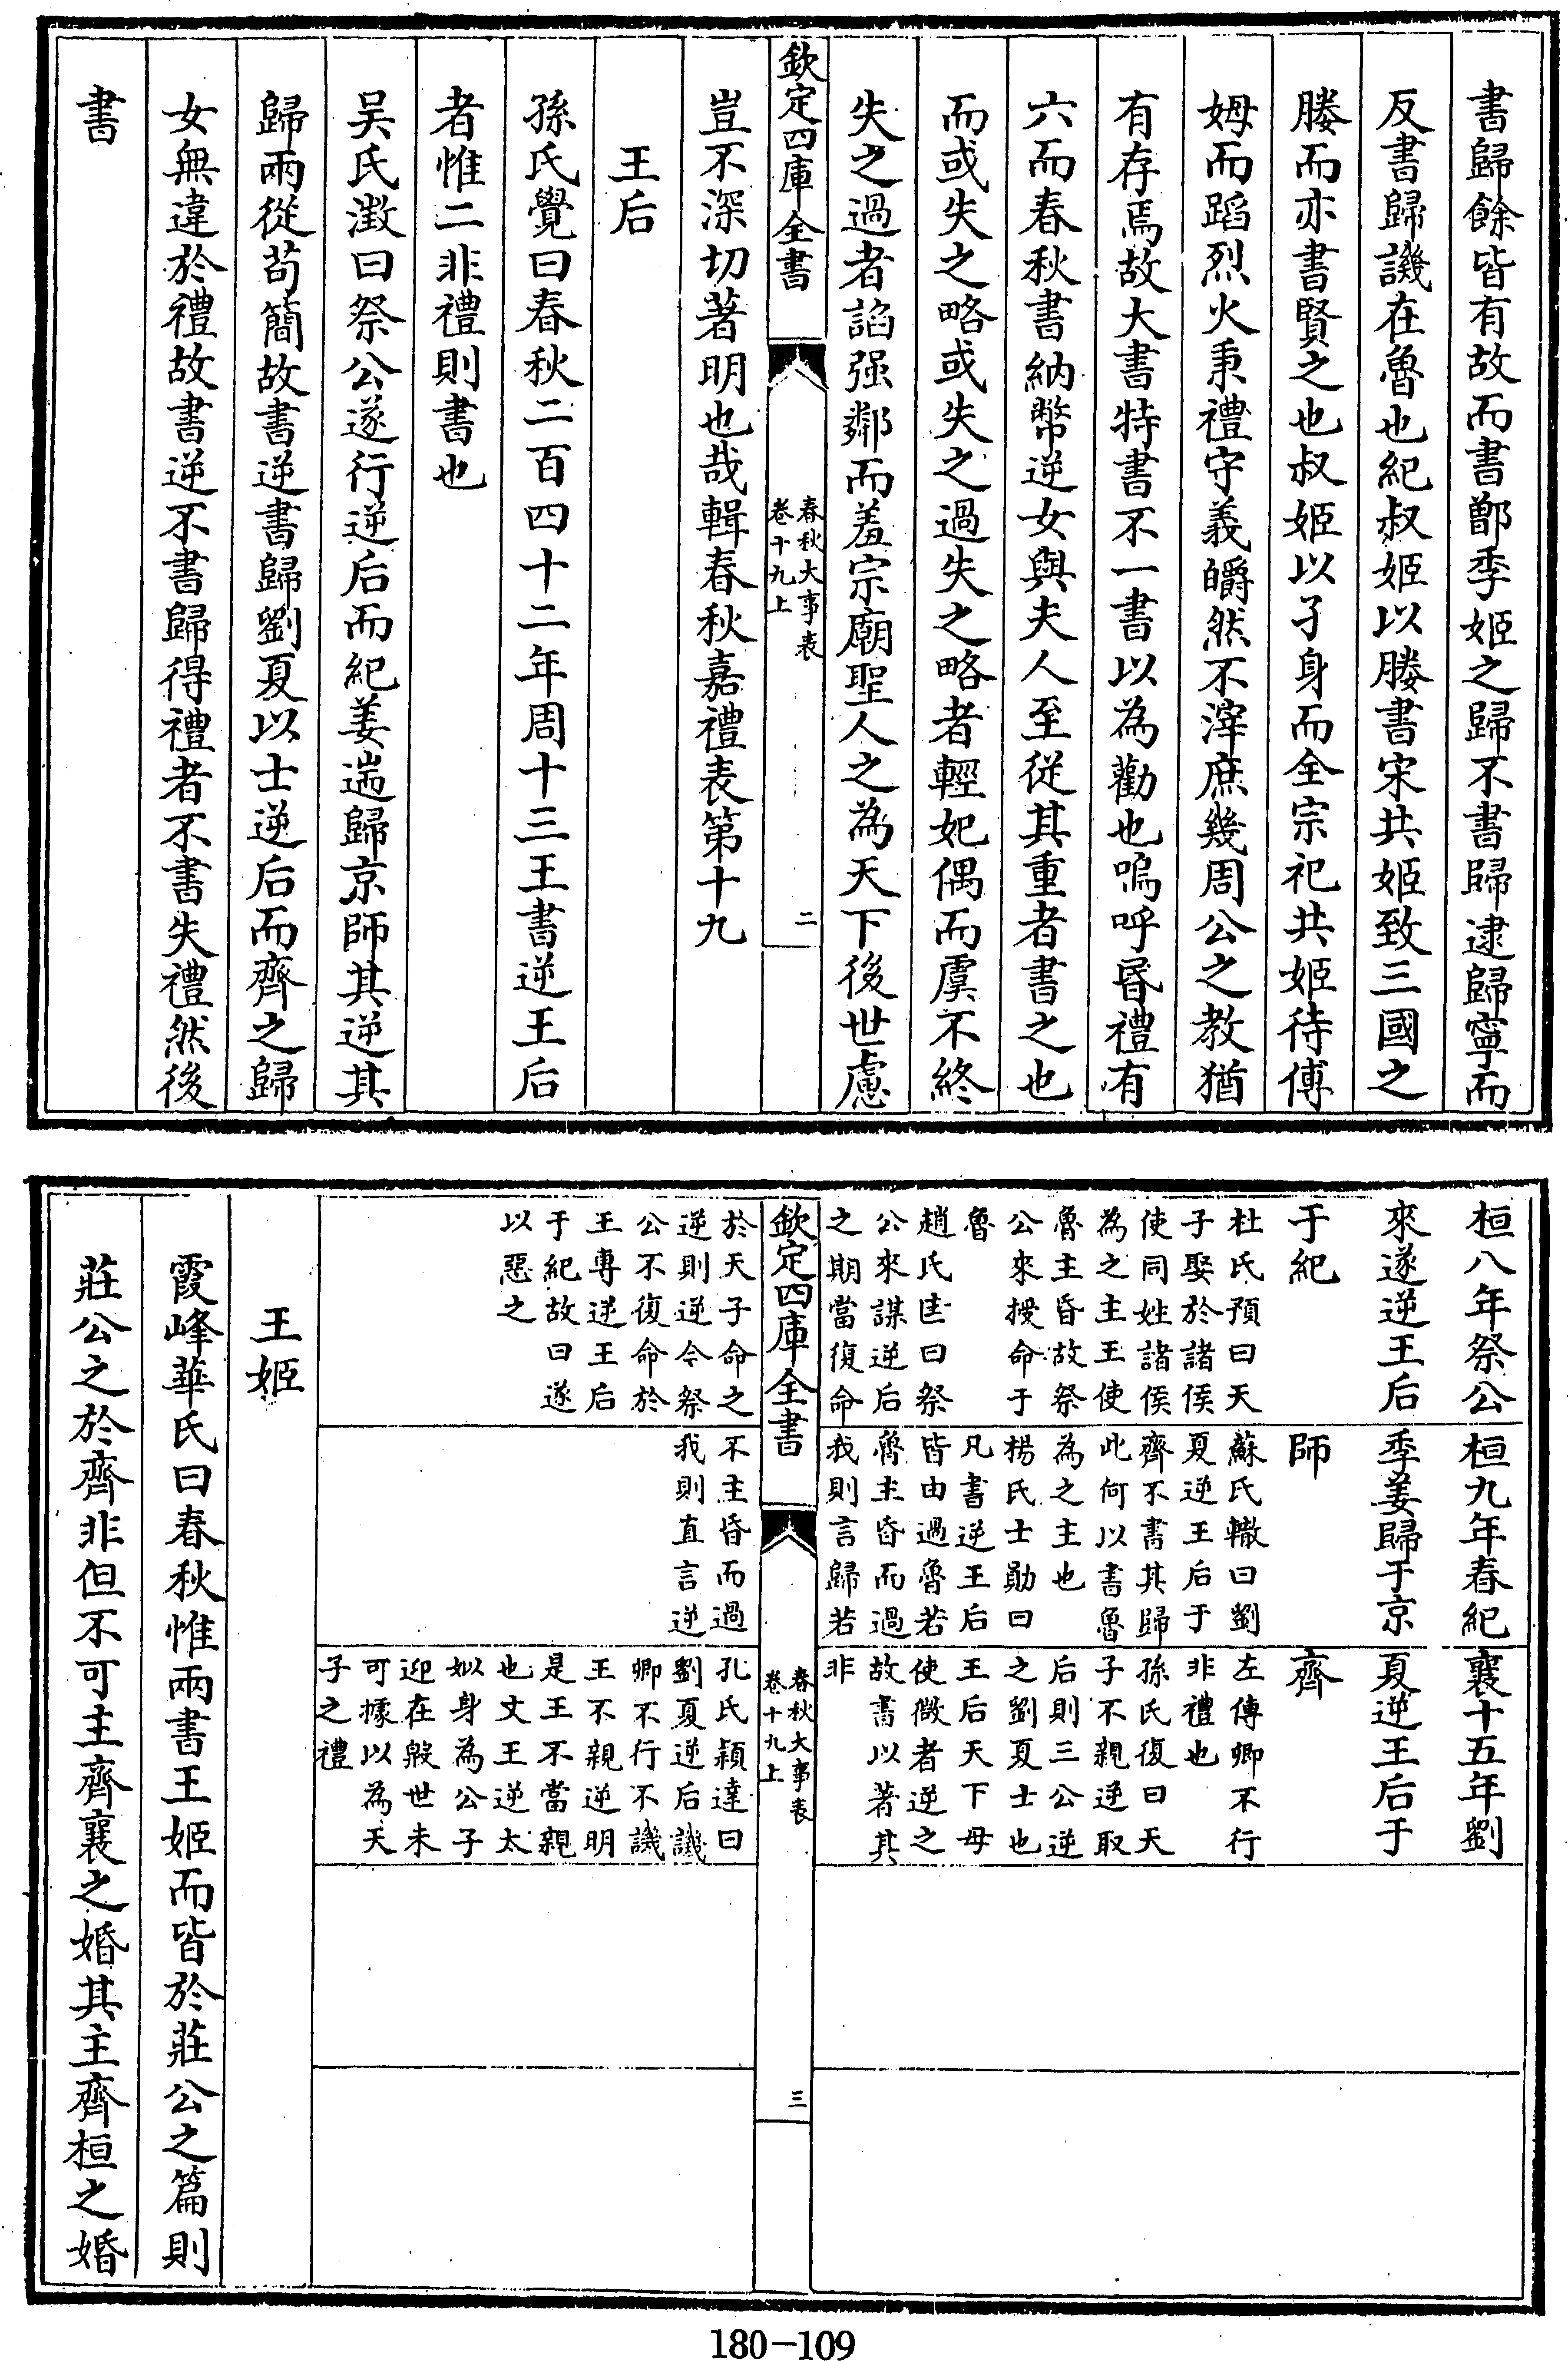 書歸餘皆有故而書鄫季姬之歸不書歸逮歸寧而
反書歸譏在魯也紀叔姬以媵書宋共姬致三國之
媵而亦書賢之也叔姬以孑身而全宗祀共姬待傅
姆而蹈烈火秉禮守義皭然不滓庶幾周公之教猶
有存焉故大書特書不一書以為勸也嗚呼昬禮有
六而春秋書納幣逆女與夫人至從其重者書之也
而或失之略或失之過失之略者輕妃偶而虞不終
失之過者諂强鄰而羞宗廟聖人之為天下後世慮
欽定四庫全書
春秋大事表
卷十九上
二
豈不深切著明也哉輯春秋嘉禮表第十九
王后
孫氏覺曰春秋二百四十二年周十三王書逆王后
者惟二非禮則書也
吴氏澂曰祭公遂行逆后而紀姜遄歸京師其逆其
歸兩從苟簡故書逆書歸劉夏以士逆后而齊之歸
女無違於禮故書逆不書歸得禮者不書失禮然後
書
桓八年祭公
來遂逆王后
于紀
杜氏預曰天
子娶於諸侯
使同姓諸侯
為之主王使
魯主昏故祭
公來授命于
魯
趙氏匡曰祭
公來謀逆后
之期當復命
於天子命之
逆則逆今祭
公不復命於
王專逆王后
于紀故曰遂
以惡之
桓九年春紀
季姜歸于京
師
蘇氏轍曰劉
夏逆王后于
齊不書其歸
此何以書魯
為之主也
楊氏士勛曰
凡書逆王后
皆由過魯若
魯主昏而過
我則言歸若
不主昏而過
我則直言逆
襄十五年劉
夏逆王后于
齊
左傳卿不行
非禮也
孫氏復曰天
子不親逆取
后則三公逆
之劉夏士也
王后天下母
使微者逆之
故書以著其
非
孔氏穎達曰
劉夏逆后譏
卿不行不譏
王不親逆明
是王不當親
也文王逆太
姒身為公子
迎在殷世未
可據以為天
子之禮
欽定四庫全書
春秋大事表
卷十九上
三
王姬
霞峰華氏曰春秋惟兩書王姬而皆於莊公之篇則
莊公之於齊非但不可主齊襄之婚其主齊桓之婚
180-109